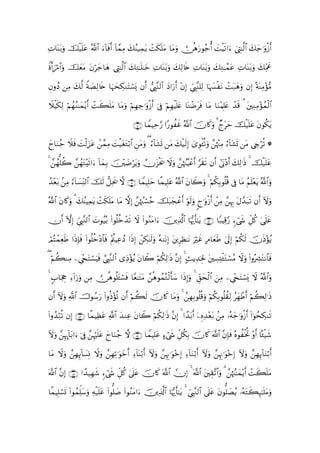 أَزْوَٰجَكَ ٱلَّٰتِىٓ ءَاتَيْتَ أُجُورَهُنَّ وَمَا مَلَكَتْ يَمِينُكَ مِمَّآ أَفَآءَ ٱللَّهُ عَلَيْكَ وَبَنَاتِ
عَمِّكَ وَبَنَاتِ عَمَّٰتِكَ وَبَنَاتِ خَالِكَ وَبَنَاتِ خَٰلَٰتِكَ ٱلَّٰتِى هَاجَرْنَ مَعَكَ وَٱمْرَأَةً
مُّؤْمِنَةً إِن وَهَبَتْ نَفْسَهَا لِلنَّبِىِّ إِنْ أَرَادَ ٱلنَّبِىُّ أَن يَسْتَنكِحَهَا خَالِصَةً لَّكَ مِن دُونِ
ٱلْمُؤْمِنِينَ ۗ قَدْ عَلِمْنَا مَا فَرَضْنَا عَلَيْهِمْ فِىٓ أَزْوَٰجِهِمْ وَمَا مَلَكَتْ أَيْمَٰنُهُمْ لِكَيْلَا
يَكُونَ عَلَيْكَ حَرَجٌ ۗ وَكَانَ ٱللَّهُ غَفُورًا رَّحِيمًا ﴿٥٠﴾
۞ تُرْجِى مَن تَشَآءُ مِنْهُنَّ وَتُـْٔوِىٓ إِلَيْكَ مَن تَشَآءُ ۖ وَمَنِ ٱبْتَغَيْتَ مِمَّنْ عَزَلْتَ فَلَا جُنَاحَ
عَلَيْكَ ۚ ذَٰلِكَ أَدْنَىٰٓ أَن تَقَرَّ أَعْيُنُهُنَّ وَلَا يَحْزَنَّ وَيَرْضَيْنَ بِمَآ ءَاتَيْتَهُنَّ كُلُّهُنَّ ۚ
وَٱللَّهُ يَعْلَمُ مَا فِى قُلُوبِكُمْ ۚ وَكَانَ ٱللَّهُ عَلِيمًا حَلِيمًا ﴿٥١﴾ لَّا يَحِلُّ لَكَ ٱلنِّسَآءُ مِنۢ بَعْدُ
وَلَآ أَن تَبَدَّلَ بِهِنَّ مِنْ أَزْوَٰجٍ وَلَوْ أَعْجَبَكَ حُسْنُهُنَّ إِلَّا مَا مَلَكَتْ يَمِينُكَ ۗ وَكَانَ ٱللَّهُ
عَلَىٰ كُلِّ شَىْءٍ رَّقِيبًا ﴿٥٢﴾ يَٰٓأَيُّهَا ٱلَّذِينَ ءَامَنُوا۟ لَا تَدْخُلُوا۟ بُيُوتَ ٱلنَّبِىِّ إِلَّآ أَن
يُؤْذَنَ لَكُمْ إِلَىٰ طَعَامٍ غَيْرَ نَٰظِرِينَ إِنَىٰهُ وَلَٰكِنْ إِذَا دُعِيتُمْ فَٱدْخُلُوا۟ فَإِذَا طَعِمْتُمْ
فَٱنتَشِرُوا۟ وَلَا مُسْتَـْٔنِسِينَ لِحَدِيثٍ ۚ إِنَّ ذَٰلِكُمْ كَانَ يُؤْذِى ٱلنَّبِىَّ فَيَسْتَحْىِۦ مِنكُمْ ۖ
وَٱللَّهُ لَا يَسْتَحْىِۦ مِنَ ٱلْحَقِّ ۚ وَإِذَا سَأَلْتُمُوهُنَّ مَتَٰعًا فَسْـَٔلُوهُنَّ مِن وَرَآءِ حِجَابٍ ۚ
ذَٰلِكُمْ أَطْهَرُ لِقُلُوبِكُمْ وَقُلُوبِهِنَّ ۚ وَمَا كَانَ لَكُمْ أَن تُؤْذُوا۟ رَسُولَ ٱللَّهِ وَلَآ أَن
تَنكِحُوٓا۟ أَزْوَٰجَهُۥ مِنۢ بَعْدِهِۦٓ أَبَدًا ۚ إِنَّ ذَٰلِكُمْ كَانَ عِندَ ٱللَّهِ عَظِيمًا ﴿٥٣﴾ إِن تُبْدُوا۟
شَيْـًٔا أَوْ تُخْفُوهُ فَإِنَّ ٱللَّهَ كَانَ بِكُلِّ شَىْءٍ عَلِيمًا ﴿٥٤﴾ لَّا جُنَاحَ عَلَيْهِنَّ فِىٓ ءَابَآئِهِنَّ وَلَآ
أَبْنَآئِهِنَّ وَلَآ إِخْوَٰنِهِنَّ وَلَآ أَبْنَآءِ إِخْوَٰنِهِنَّ وَلَآ أَبْنَآءِ أَخَوَٰتِهِنَّ وَلَا نِسَآئِهِنَّ وَلَا مَا
مَلَكَتْ أَيْمَٰنُهُنَّ ۗ وَٱتَّقِينَ ٱللَّهَ ۚ إِنَّ ٱللَّهَ كَانَ عَلَىٰ كُلِّ شَىْءٍ شَهِيدًا ﴿٥٥﴾ إِنَّ ٱللَّهَ
وَمَلَٰٓئِكَتَهُۥ يُصَلُّونَ عَلَى ٱلنَّبِىِّ ۚ يَٰٓأَيُّهَا ٱلَّذِينَ ءَامَنُوا۟ صَلُّوا۟ عَلَيْهِ وَسَلِّمُوا۟ تَسْلِيمًا